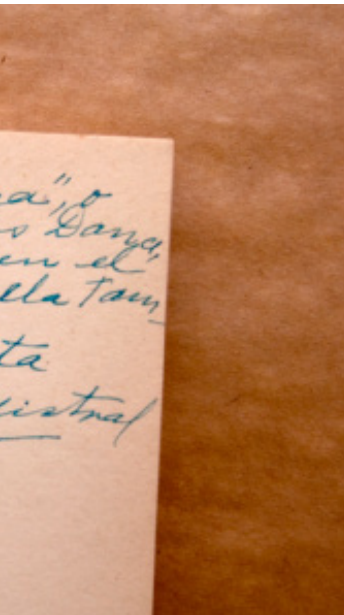 a", o
s Dana,
en el
ella tam-
ta
istral